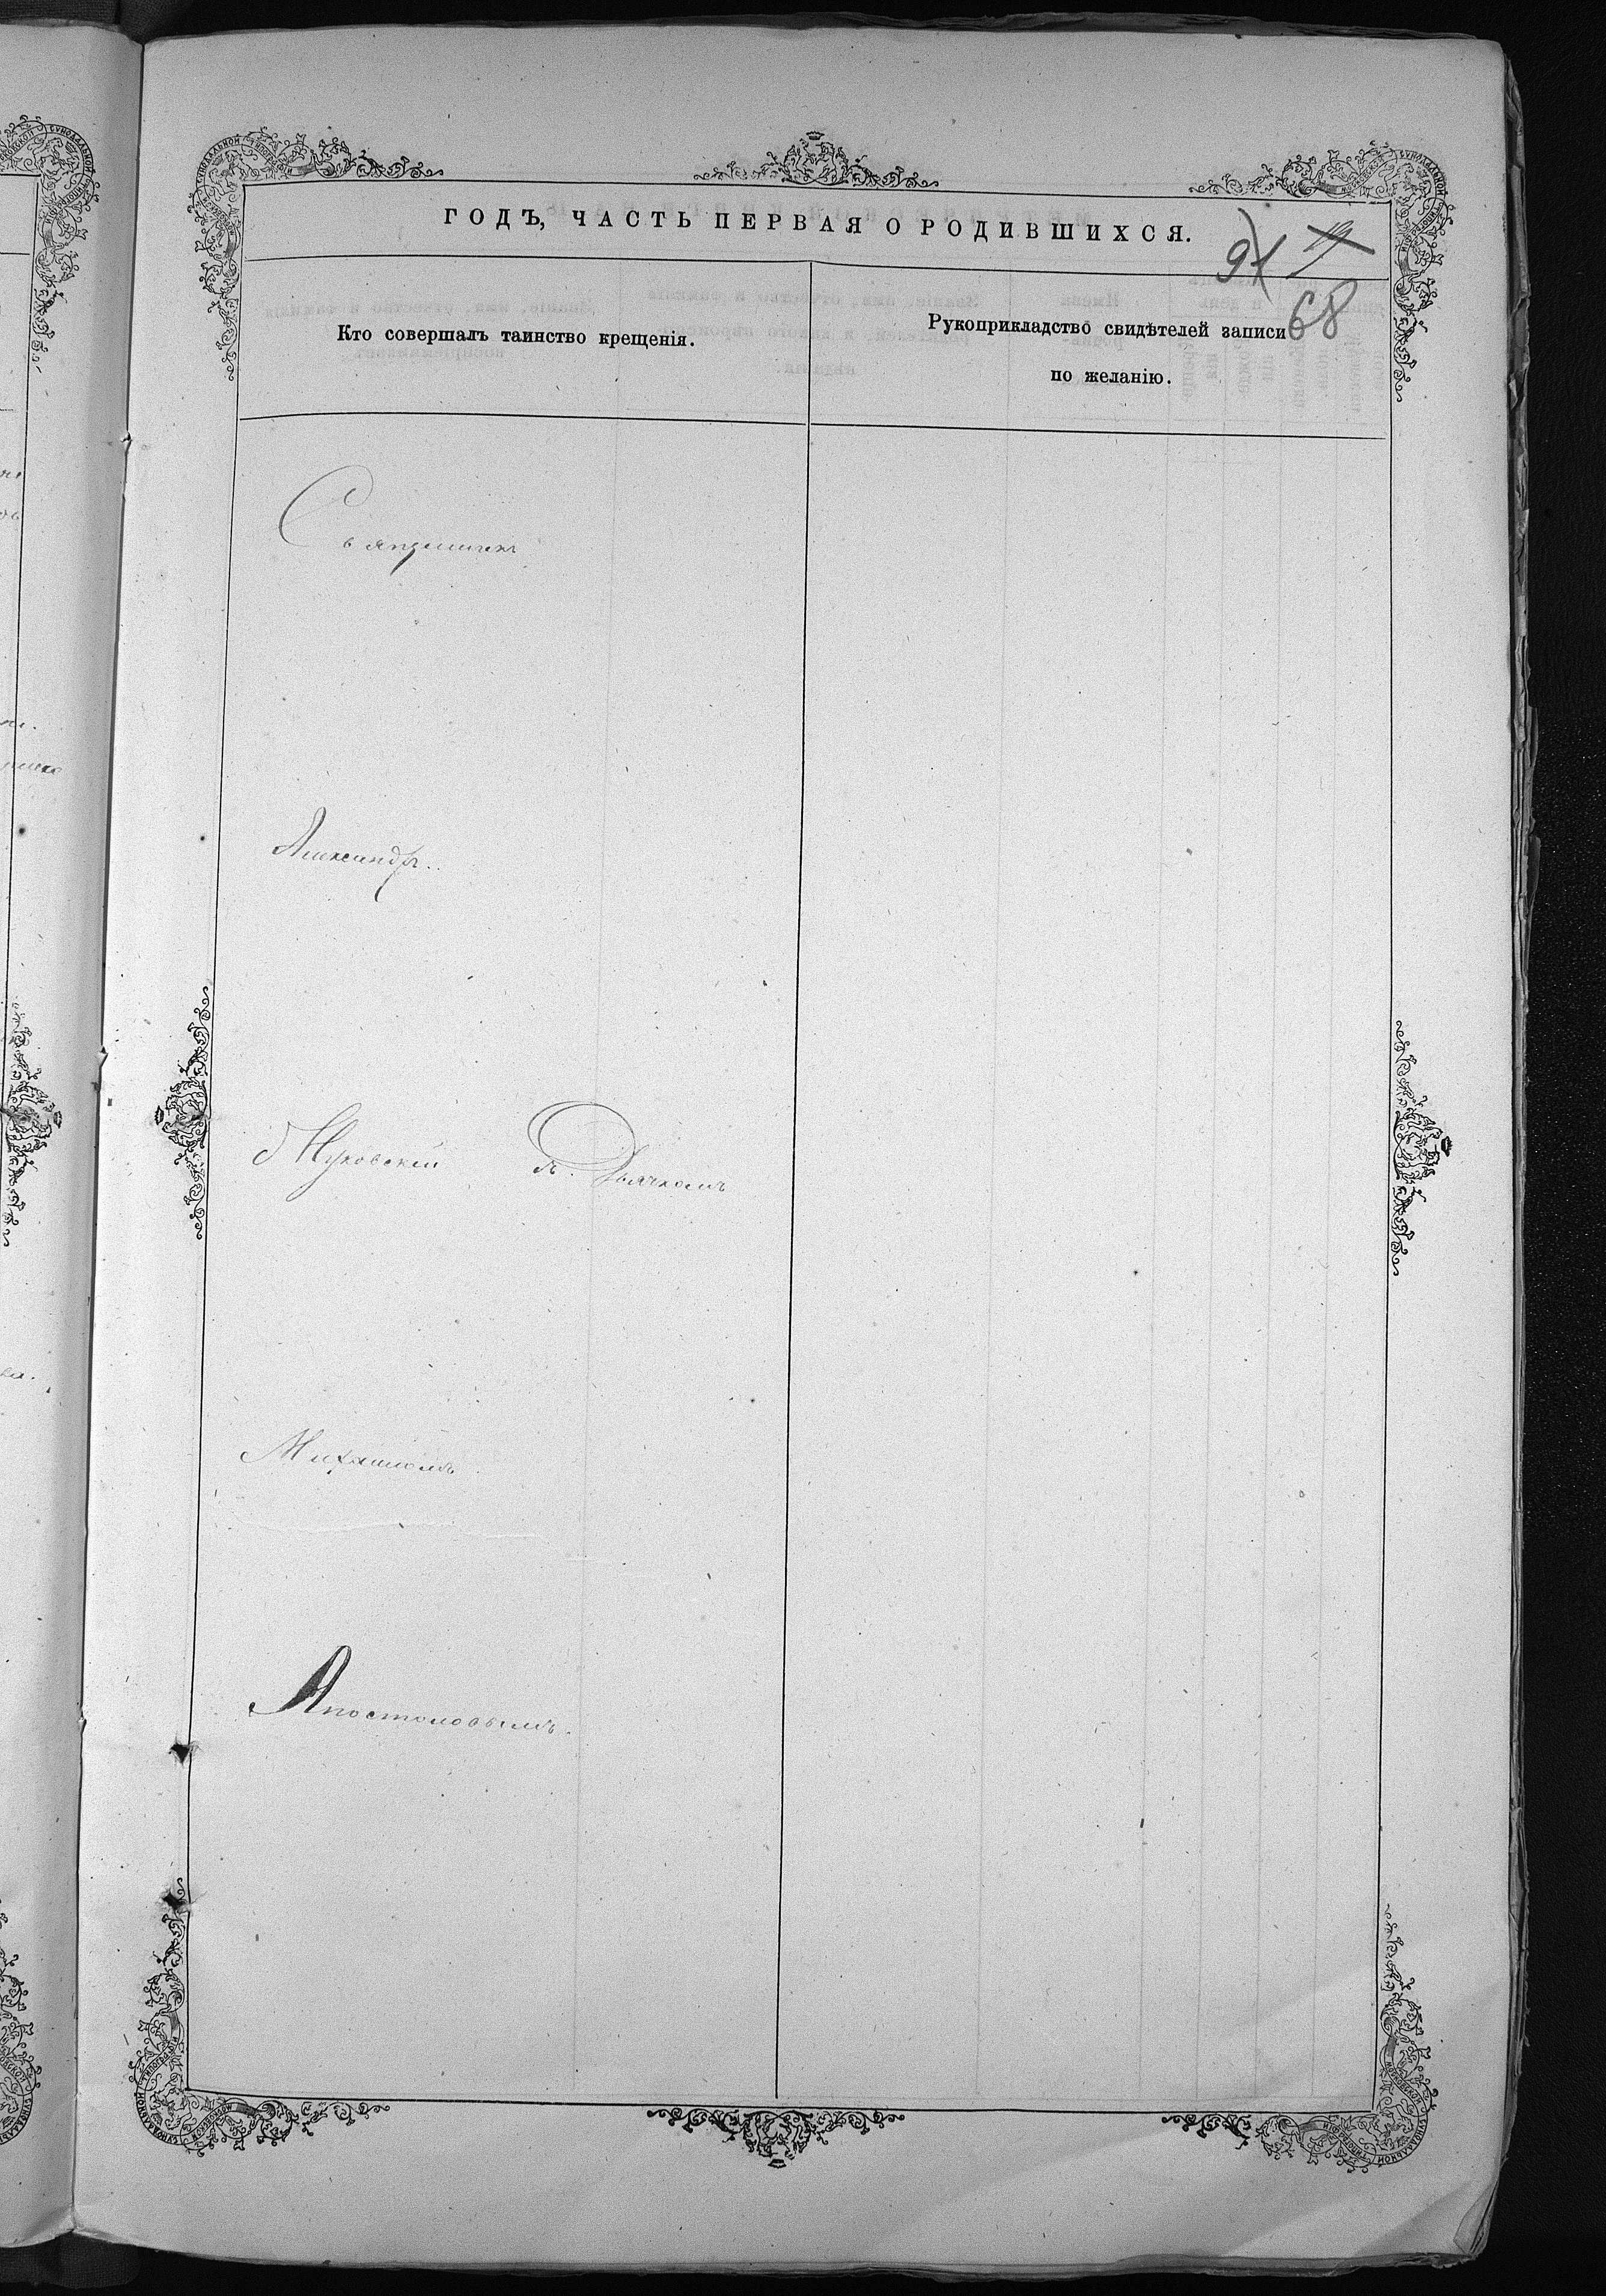 ГОДЪ, ЧАСТЬ ПЕРВАЯ О РОДИВШИХСЯ.
68
Кто совершалъ таинство крещенія.
Рукоприкладство свидѣтелей записи
по желанію.
Священникъ
Александръ
съ Дьячкомъ
Михаиломъ
Апостоловымъ.